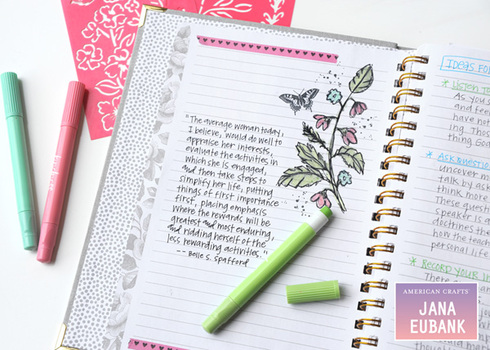 "The average woman today,
I believe, would do well to
appraise her interests,
evaluate the activities in
which she is engaged,
and then take steps to
simplify her life, putting
things of first importance
first, placing emphasis
where the rewards will be
greatest and most enduring,
and ridding herself of the
less rewarding activities."
-- Belle S. Spafford
IDEAS FO
Listen to
as you s
and tee
have not
ing. Thos
thing Goa
Ask questio
uncover m
talks by ask
think more
These ques
speaker is
doctrines
how the teach
personal life
RECORD YOUR I
AMERICAN CRAFTS
JANA
EUBANK